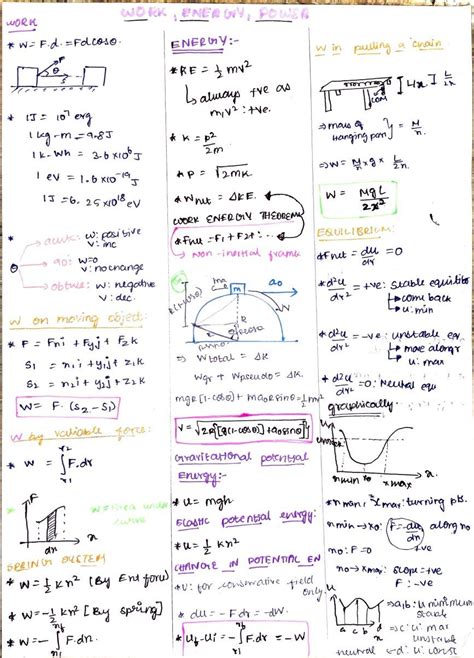 WORK, ENERGY, POWER
WORK
* W = F.d. = Fdcosθ.
F
θ
S
* 1J = 10⁷ erg
1 kg-m = 9.8J
1 k-Wh = 3.6x10⁶ J
1 eV = 1.6x10⁻¹⁹ J
1J = 6.25x10¹⁸ eV
* θ
acute: W: positive
v: inc
90: W=0
v: no change
obtuse: W: negative
v: dec.
W on moving object:
* F = Fxi + Fyj + Fzk
S₁ = x₁i + y₁j + z₁k
S₂ = x₂i + y₂j + z₂k
W = F.(S₂-S₁)
W by variable force:
* W = ∫F.dx
F
dx
x
W = area under curve
SPRING SYSTEM
* W = ½Kx² [By Ext force]
* W = -½Kx² [By spring]
* W = -∫F.dx.
ENERGY:-
* KE = ½mv²
↳ always +ve as
m, v²: +ve.
* K = p²/2m
* P = √2mK
* Wnet = ΔKE.
WORK ENERGY THEOREM
* Fnet = F₁+F₂+...
↳ non-inertial frame
m
a₀
R
⇒ Wtotal = ΔK.
Wgr + Wpseudo = ΔK.
mgR[1-cosθ] + ma₀Rsinθ = ½mv²
v = √2R[g(1-cosθ)+a₀sinθ]
Gravitational potential
Energy:-
* U = mgh
Elastic potential energy:
* U = ½Kx²
CHANGE IN POTENTIAL EN
* U: for conservative field
only
* dU = -F.dr = -dW.
* Uf-Ui = -∫F.dr = -W
W in pulling a chain
L/x
⇒ mass of
hanging part } = M/n.
⇒ W = M/n x g x L/2n.
W = MgL/2n²
EQUILIBRIUM:
* Fnet = dU/dr = 0
* d²U/dr² = +ve: stable equilib
↳ come back
↳ U: min
* d²U/dr² = -ve: unstable eq
↳ move along r
↳ U: max
* d²U/dr² = 0: Neutral equ
graphically:
U
x min
x₀
x max
x.
* x min, x max: turning pts.
x min → x₀:
x₀: F=0
x₀ → x max: slope=+ve
F: -ve
U
a b c d x
→ a, b: U minimum
stable
→ c: U: max
unstable
neutral ← d: U: const